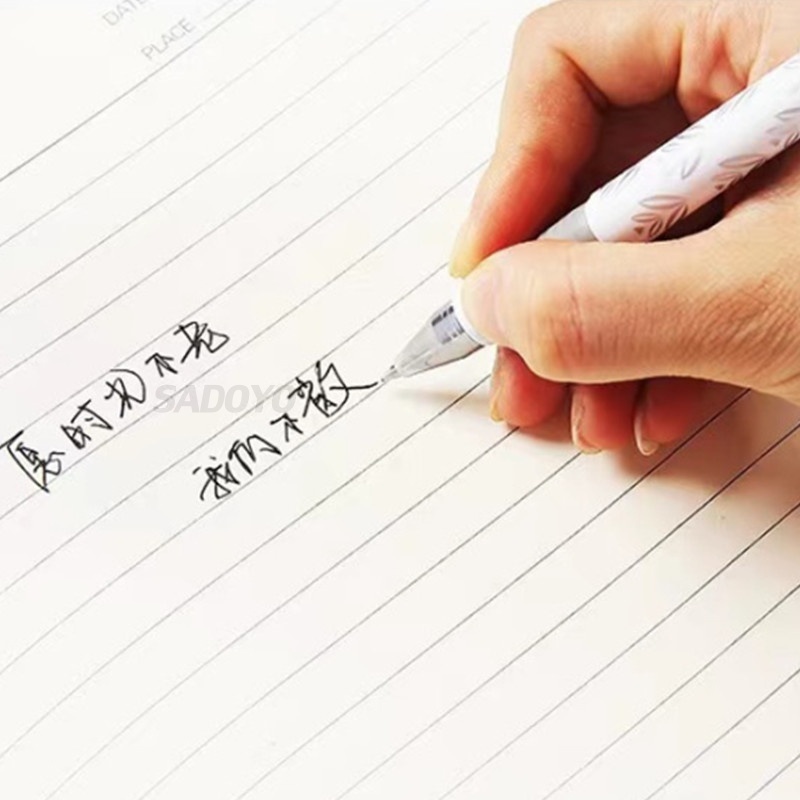 DATE
PLACE
愿时光不老
我们不散
SADOYO